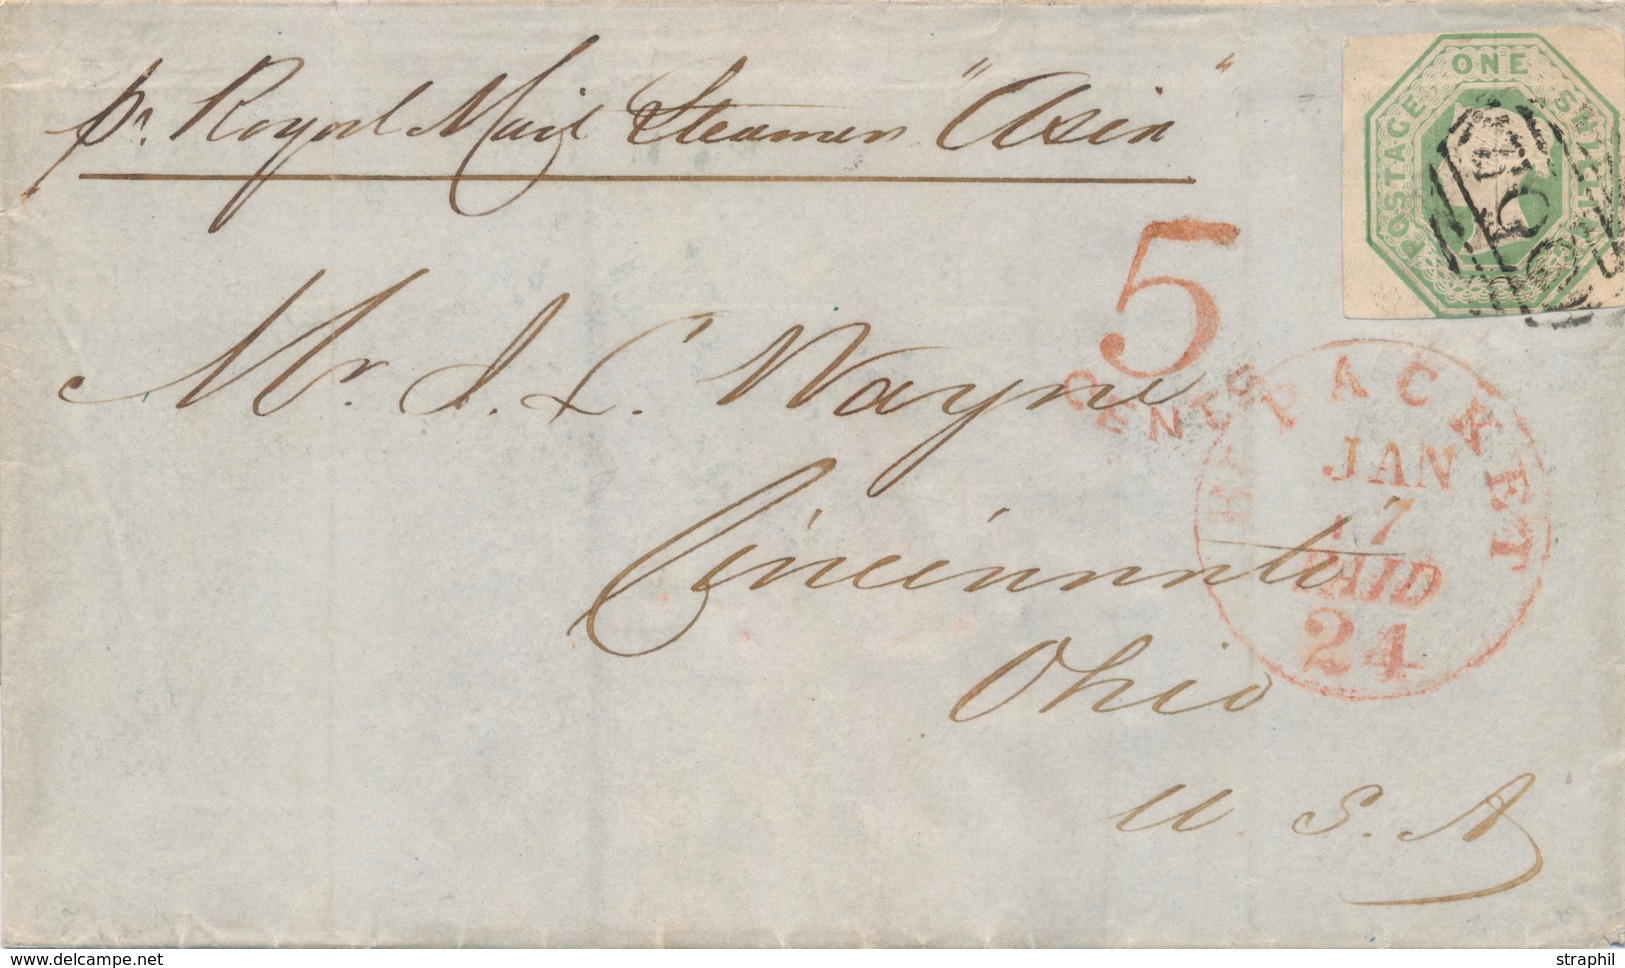 pr. Royal Mail Steamer "Asia"
POSTAGE ONE SHILLING
5
CENTS
Mr. J. C. Wayne
BR. PACKET
JAN
17
PAID
24
Cincinnati
Ohio
U. S. A
straphil
delcampe.net